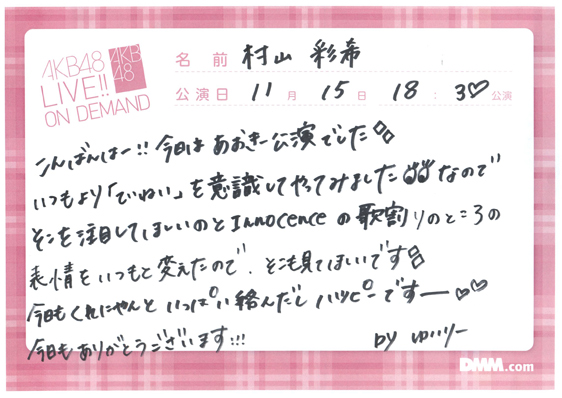 AKB48
LIVE!!
ON DEMAND
AKB
48
名前 村山 彩希
公演日 11月 15日 18:30♡公演
こんばんはー!!今日はあおきー公演でした
いつもより「ていねい」を意識してやってみましたなので
そこを注目してほしいのとInnocenceの歌割りのところの
表情をいつもと変えたので、そこも見てほしいです
今日もくれにゃんといっぱい絡んだしハッピーですー♡♡
今日もありがとうございます!!!
by ゆいりー
DMM.com